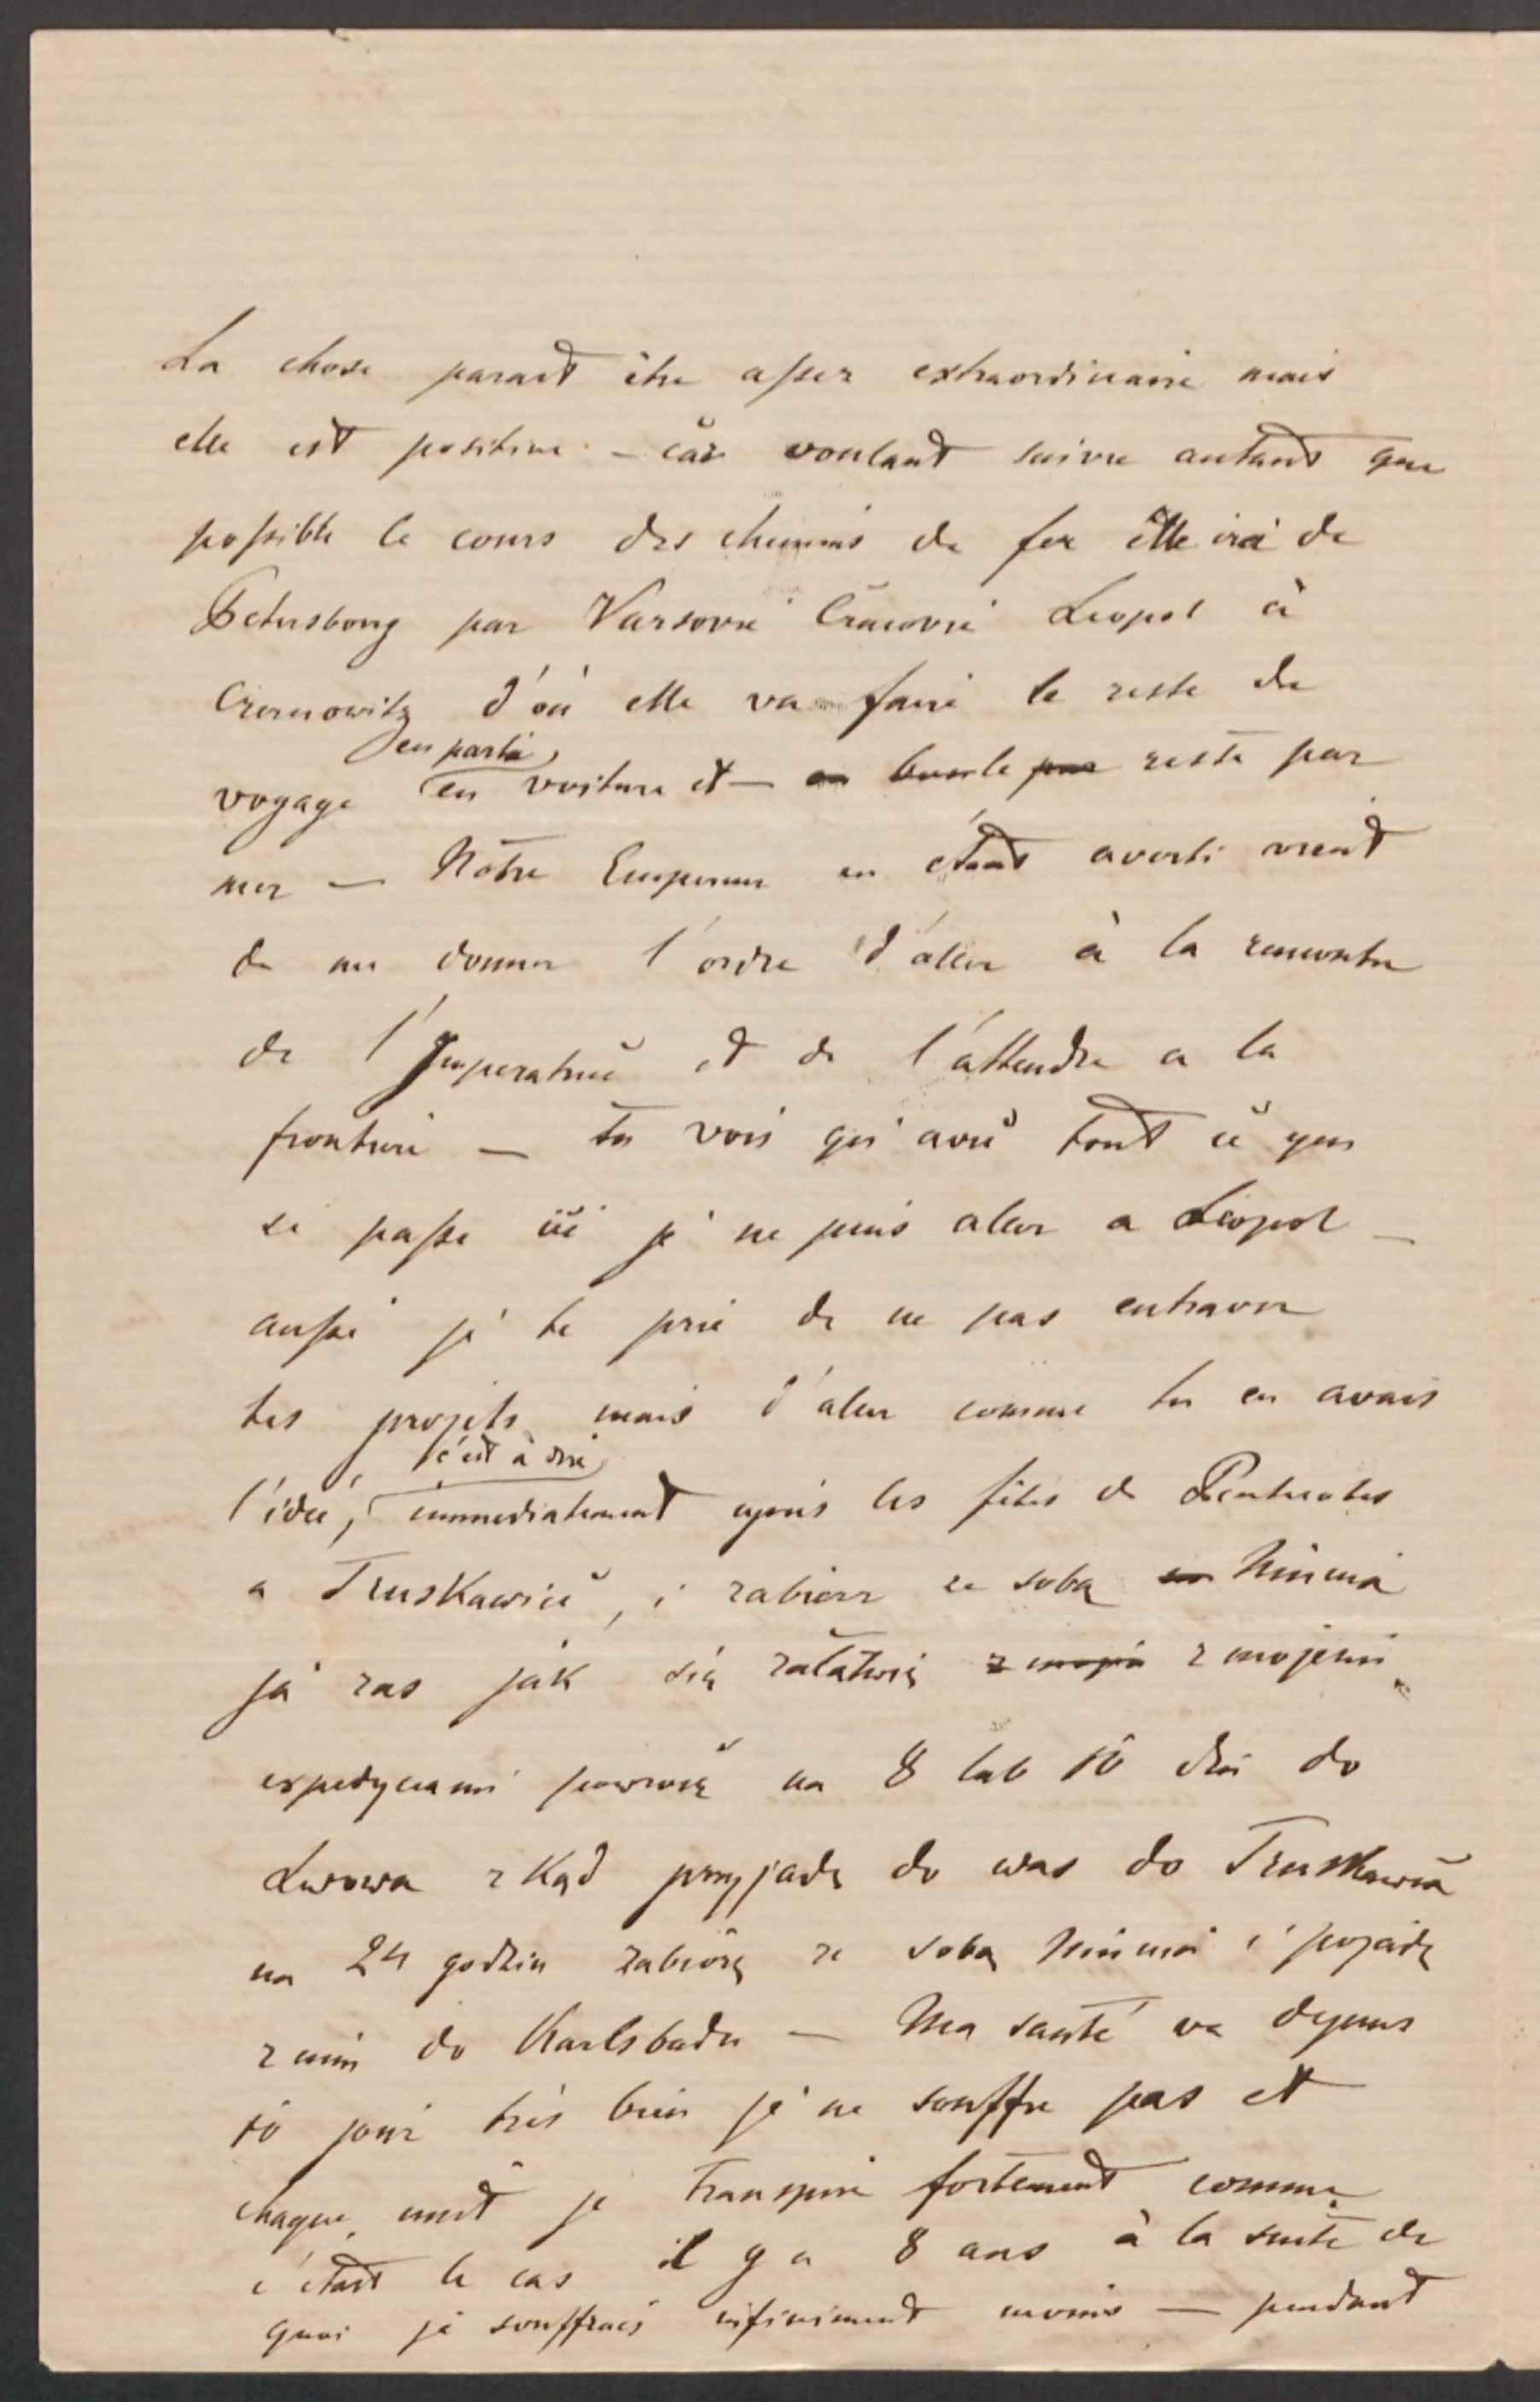 La chose parait être assez extraordinaire mais
elle est positive – car voulant suivre autant que
possible le cours des chemins de fer elle ira de
Petersbourg par Varsovie Cracovie Leopol à
Czernowitz d'où elle va faire le reste du
en partie
voyage en voiture et – reste par
mer – Nôtre Empereur en étant averti vient
de me donner l'ordre d'aller à la rencontre
de l'Imperatrice et de l'attendre a la
frontiere – tu vois qu'avec tout ce que
se passe ici je ne puis aler a Léopol –
aussi je te prie de ne pas entraver
tes projets mais d'aler comme tu en avais
c'est à dire
l'idée, immediatement après les fêtes de Pentecotes
a Truskawiec, i zabierz ze sobą Niunia
ja zas jak się załatwię z mojemi
expedycyami powrócę na 8 lub 10 dni do
Lwowa zkąd przyjadę do was do Truskawca
na 24 godzin zabiorę ze sobą Niunia i pojadę
z nim do Karlsbadu – Ma santé va depuis
10 jour très bien je ne souffre pas et
chaque nuit je transpire fortement comme
c'était le cas il y a 8 ans à la suite de
quoi je souffrais infiniment moins – pendant